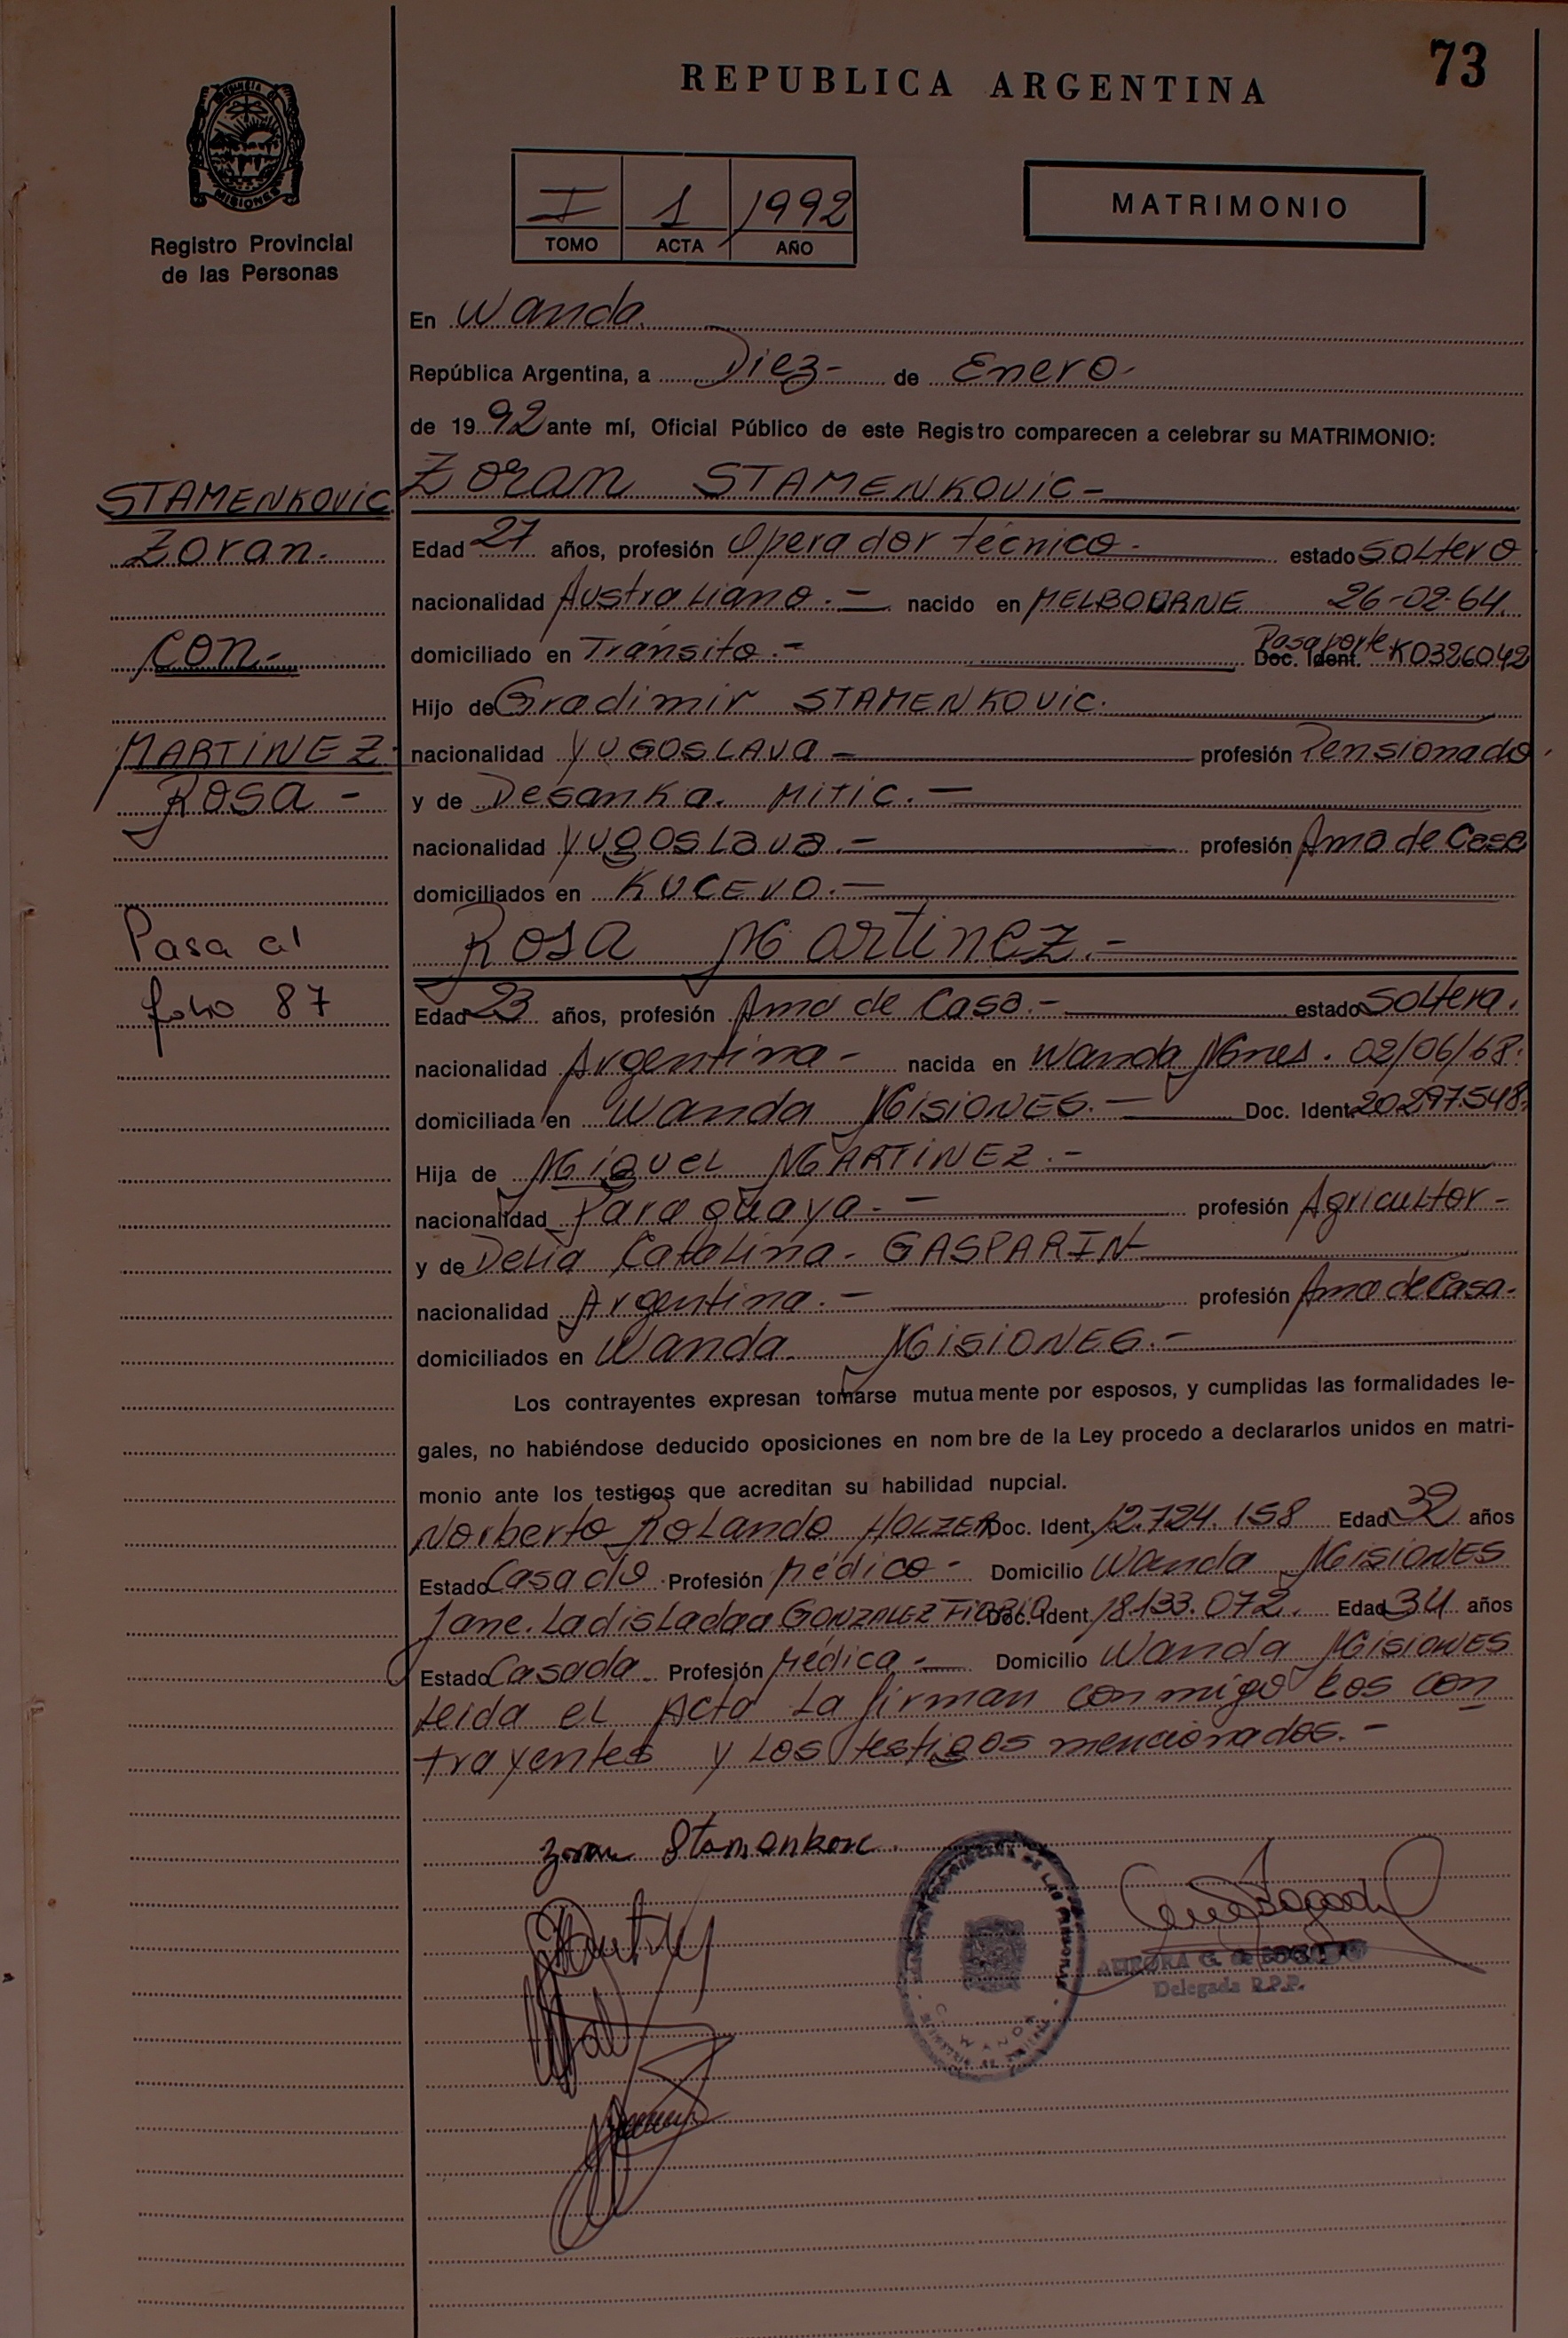 73
REPUBLICA ARGENTINA
PROVINCIA D
MISIONES
Registro Provincial
de las Personas
I 1 1992
TOMO ACTA AÑO
MATRIMONIO
En Wanda
República Argentina, a Diez- de Enero-
de 19 92 ante mí, Oficial Público de este Registro comparecen a celebrar su MATRIMONIO:
STAMENKOVIC
Zoran.
CON-
MARTINEZ-
ROSA-
Pasa al
folio 87
Zoran STAMENKOVIC-
Edad 27 años, profesión Operador técnico- estado SOLtero
nacionalidad AustraLiano.- nacido en MELBOURNE 26-02-64.
domiciliado en Tránsito.- Pasaporte Doc. Ident. K0326042
Hijo de Gradimir STAMENKOVIC.
nacionalidad YUGOSLAVA- profesión Pensionado
y de Desanka. MITIC.-
nacionalidad YugosLava.- profesión Ama de Casa
domiciliados en KUCEVO.-
Rosa Martinez.-
Edad 23 años, profesión Ama de Casa.- estado SoLtera.
nacionalidad Argentina- nacida en Wanda Mnes. 02/06/68.
domiciliada en Wanda MISIONES.- Doc. Ident. 20.297.548.
Hija de MigueL MARTINEZ.-
nacionalidad Paraguaya.- profesión AgricuLtor-
y de DeLia CataLina- GASPARIN
nacionalidad Argentina.- profesión Ama de Casa-
domiciliados en Wanda MISIONES.-
Los contrayentes expresan tomarse mutuamente por esposos, y cumplidas las formalidades le-
gales, no habiéndose deducido oposiciones en nombre de la Ley procedo a declararlos unidos en matri-
monio ante los testigos que acreditan su habilidad nupcial.
Norberto RoLando HOLZER Doc. Ident. 12.724.158 Edad 32 años
Estado Casado Profesión Médico- Domicilio Wanda MISIONES
Jane. LadisLada GONZALEZ Doc. Ident. 18.133.072. Edad 34 años
Estado Casada Profesión Médica- Domicilio Wanda MISIONES
Leida eL Acta La firman conmigo Los con
trayentes y Los testigos mencionados.-
Zoran Stamenkovic
DE LAS PERSONAS
WANDA
AURORA G. de
Delegada R.P.P.